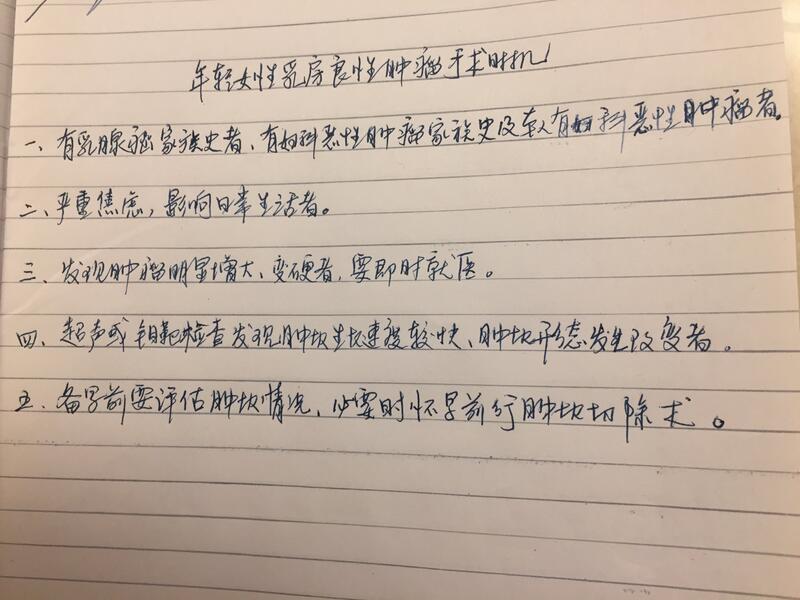 年轻女性乳房良性肿瘤手术时机
一、有乳腺癌家族史者、有妇科恶性肿瘤家族史及本人有妇科恶性肿瘤者。
二、严重焦虑，影响日常生活者。
三、发现肿瘤明显增大、变硬者，要即时就医。
四、超声或钼靶检查发现肿块生长速度较快、肿块形态发生改变者。
五、备孕前要评估肿块情况，必要时怀孕前行肿块切除术。